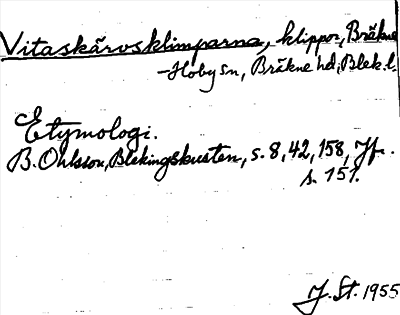 Vitaskärvsklimparna, klippor, Bräkne
-Hoby sn, Bräkne hd, Blek. l.
Etymologi.
B. Ohlsson, Blekingskusten, s. 8, 42, 158, Jfr.
s. 151.
J. St. 1955